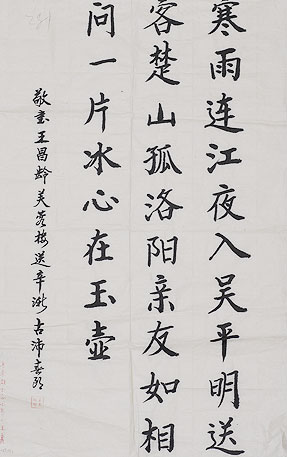 寒雨连江夜入吴平明送
客楚山孤洛阳亲友如相
问一片冰心在玉壶
敬书王昌龄芙蓉楼送辛渐古沛